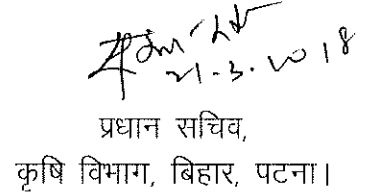 21.3.2018
प्रधान सचिव,
कृषि विभाग, बिहार, पटना।